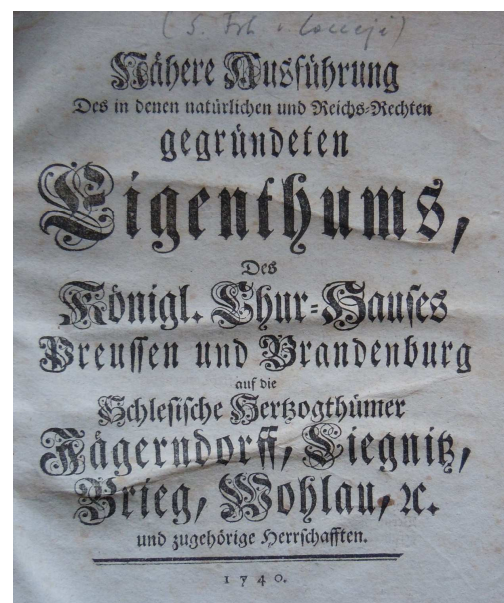 Nähere Ausführung
Des in denen natürlichen und Reichs-Rechten
gegründeten
Eigenthums,
Des
Königl. Chur-Hauses
Preussen und Brandenburg
auf die
Schlesische Hertzogthümer
Jägerndorff, Liegnitz,
Brieg, Wohlau, ꝛc.
und zugehörige Herrschafften.
1740.